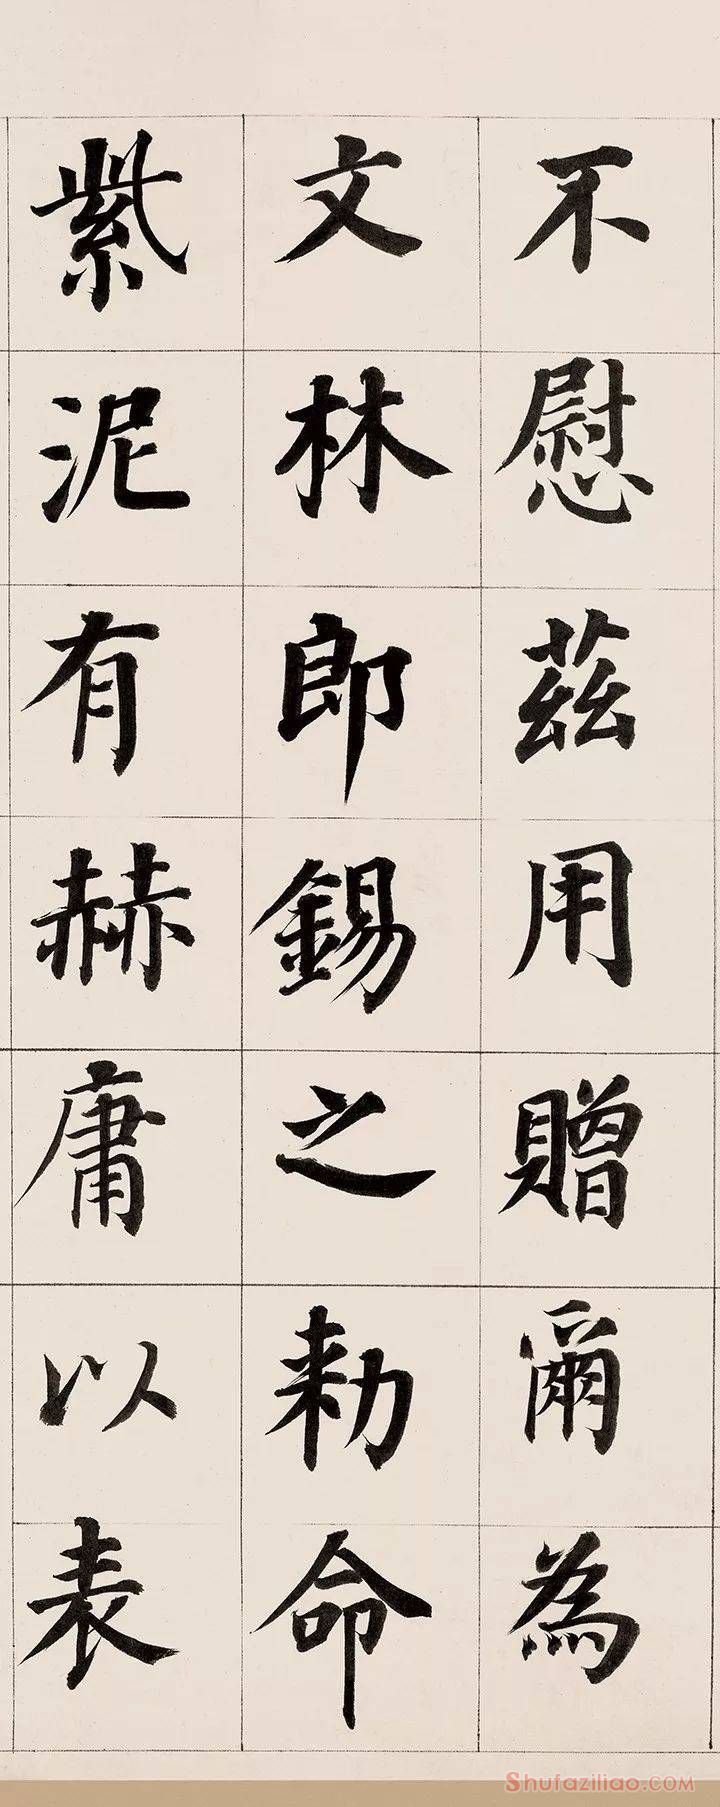 不慰茲用贈爾為
文林郎錫之勑命
紫泥有赫庸以表
Shufaziliao.com